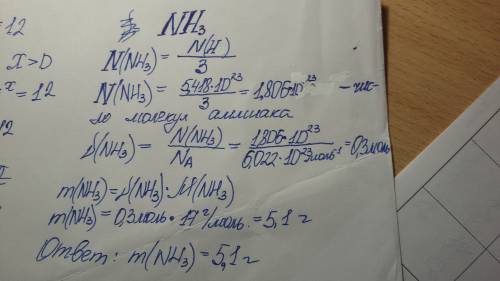 = 12
NH₃
X > D
N(NH₃) = N(H)/3
x = 12
N(NH₃) = 5,418·10²³/3 = 1,806·10²³ - чис-
ло молекул аммиака
ν(NH₃) = N(NH₃)/N_A = 1,806·10²³/6,022·10²³ моль⁻¹ = 0,3 моль
m(NH₃) = ν(NH₃)·M(NH₃)
m(NH₃) = 0,3 моль · 17 г/моль = 5,1 г
Ответ: m(NH₃) = 5,1 г